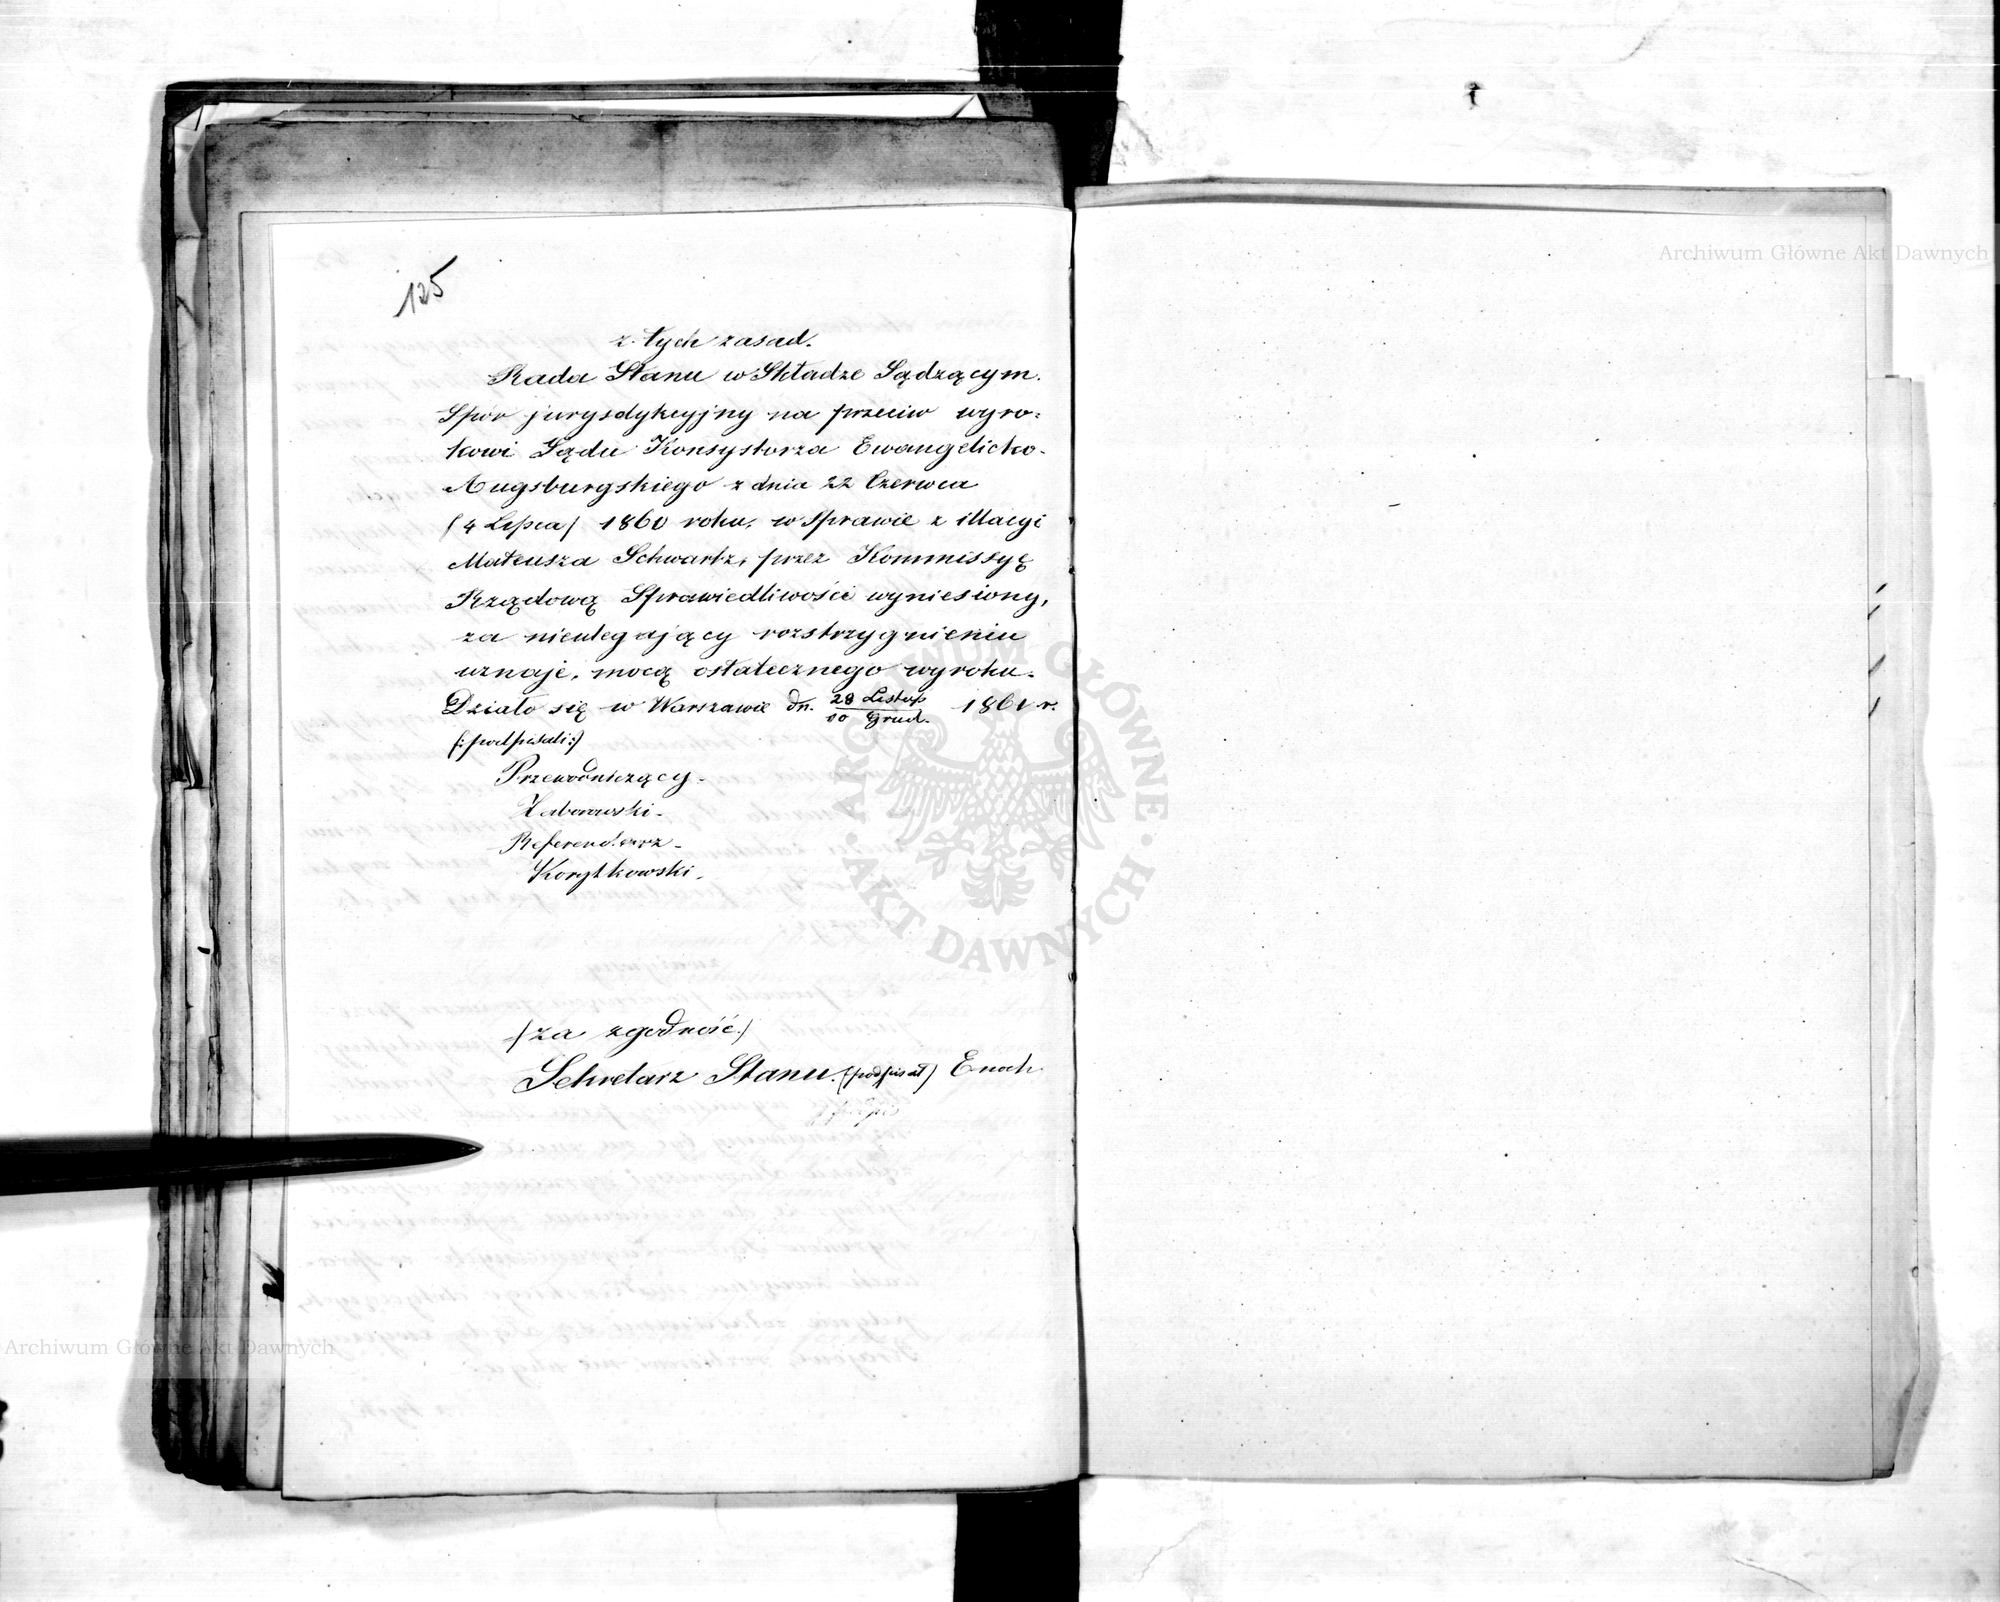 125
z tych zasad.
Rada Stanu w Składze Sądzącym.
Spór jurysdykcyjny na przeciw wyro-
kowi Sądu Konsystorza Ewangelicko-
Augsburgskiego z dnia 22 Czerwca
(4 Lipca) 1860 roku, w Sprawie z
Mateusza Schwartz, przez Kommissyę
Rządową Sprawiedliwości wyniesiony,
za nieulegający rozstrzygnieniu
uznaje, mocą ostatecznego wyroku.
Działo się w Warszawie dn. 28 Listop / 10 Grud. 1861 r.
(:podpisali:)
Przewodniczący.
Referendarz.
Korytkowski.
(za zgodność.)
Sekretarz Stanu. (podpisał) Enoch.
Archiwum Główne Akt Dawnych
ARCHIWUM GŁÓWNE · AKT DAWNYCH ·
Archiwum Główne Akt Dawnych